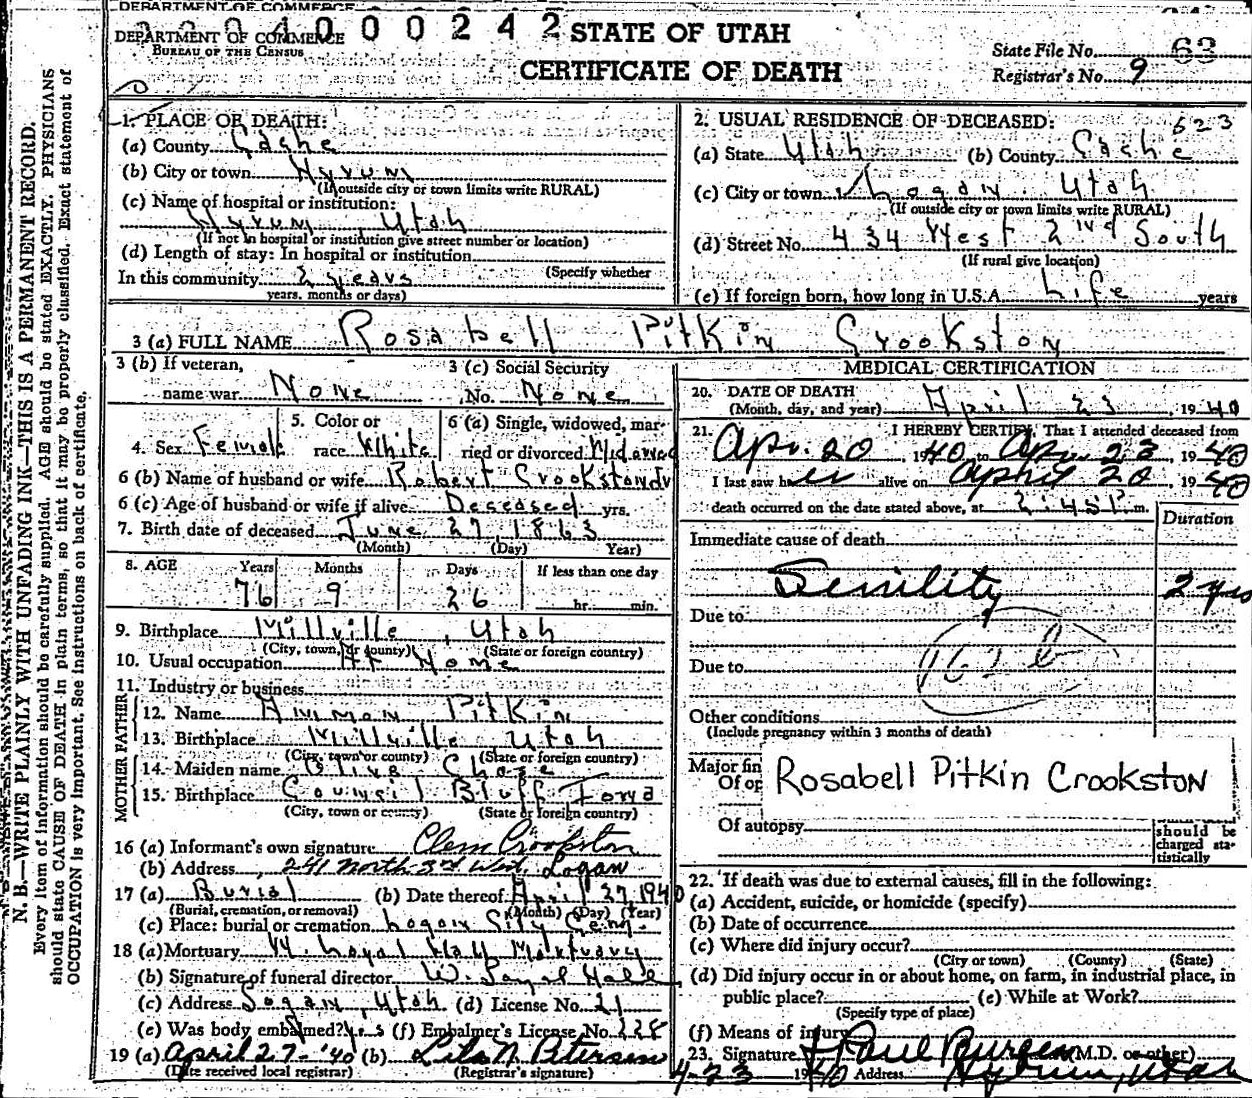 DEPARTMENT OF COMMERCE
DEPARTMENT OF COMMERCE
BUREAU OF THE CENSUS
0 4 0 0 0 2 4 2
STATE OF UTAH
CERTIFICATE OF DEATH
State File No. 63
Registrar's No. 9
N. B.—WRITE PLAINLY WITH UNFADING INK—THIS IS A PERMANENT RECORD.
Every item of information should be carefully supplied. AGE should be stated EXACTLY. PHYSICIANS
should state CAUSE OF DEATH in plain terms, so that it may be properly classified. Exact statement of
OCCUPATION is very important. See instructions on back of certificate.
1. PLACE OF DEATH:
(a) County Cache
(b) City or town Hyrum
(If outside city or town limits write RURAL)
(c) Name of hospital or institution:
Hyrum, Utah
(If not in hospital or institution give street number or location)
(d) Length of stay: In hospital or institution
(Specify whether
In this community 2 years
years, months or days)
2. USUAL RESIDENCE OF DECEASED: 523
(a) State Utah (b) County Cache
(c) City or town Logan, Utah
(If outside city or town limits write RURAL)
(d) Street No. 434 West 2nd South
(If rural give location)
(e) If foreign born, how long in U.S.A. Life years
3 (a) FULL NAME Rosabell Pitkin Crookston
3 (b) If veteran, name war None
3 (c) Social Security No. None
4. Sex Female
5. Color or race White
6 (a) Single, widowed, married or divorced Widowed
6 (b) Name of husband or wife Robert Crookston
6 (c) Age of husband or wife if alive Deceased yrs.
7. Birth date of deceased June 27, 1863
(Month) (Day) Year)
8. AGE Years Months Days If less than one day
76 9 26 hr. min.
9. Birthplace Millville, Utah
(City, town, or county) (State or foreign country)
10. Usual occupation At Home
11. Industry or business
FATHER
12. Name Ammon Pitkin
13. Birthplace Millville Utah
(City, town or county) (State or foreign country)
MOTHER
14. Maiden name Olive Chase
15. Birthplace Council Bluff Iowa
(City, town or county) (State or foreign country)
16 (a) Informant's own signature Clem Crookston
(b) Address 241 North 3rd West, Logan
17 (a) Burial (b) Date thereof April 27, 1940
(Burial, cremation, or removal) (Month) (Day) (Year)
(c) Place: burial or cremation Logan City Cem.
18 (a) Mortuary W. Loyal Hall Mortuary
(b) Signature of funeral director W. Loyal Hall
(c) Address Logan, Utah (d) License No. 21
(e) Was body embalmed? Yes (f) Embalmer's License No. 228
19 (a) April 27-'40 (b) Lila N. Petersen
(Date received local registrar) (Registrar's signature)
MEDICAL CERTIFICATION
20. DATE OF DEATH
(Month, day, and year) April 23, 1940
21. I HEREBY CERTIFY, That I attended deceased from
Apr. 20, 1940 to Apr. 23, 1940
I last saw her alive on April 20, 1940
death occurred on the date stated above, at 2:45 P. m.
Duration
Immediate cause of death
Senility 2 yrs
Due to
162 b
Due to
Other conditions
(Include pregnancy within 3 months of death)
Major fin
Of op
Rosabell Pitkin Crookston
Of autopsy
should be
charged sta-
tistically
22. If death was due to external causes, fill in the following:
(a) Accident, suicide, or homicide (specify)
(b) Date of occurrence
(c) Where did injury occur?
(City or town) (County) (State)
(d) Did injury occur in or about home, on farm, in industrial place, in
public place? (e) While at Work?
(Specify type of place)
(f) Means of injury
23. Signature Paul Burgess (M.D. or other)
4-23 1940 Address Hyrum, Utah